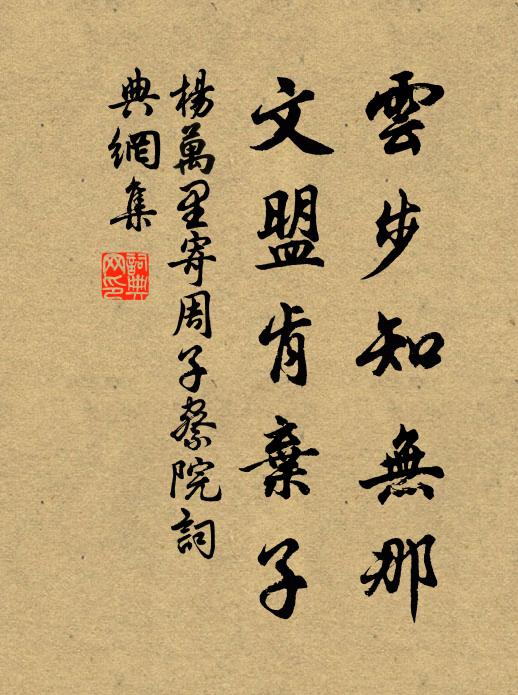 雲步知無那
文盟肯棄子
楊萬里寄周子察院詞
典網集
詞典网印